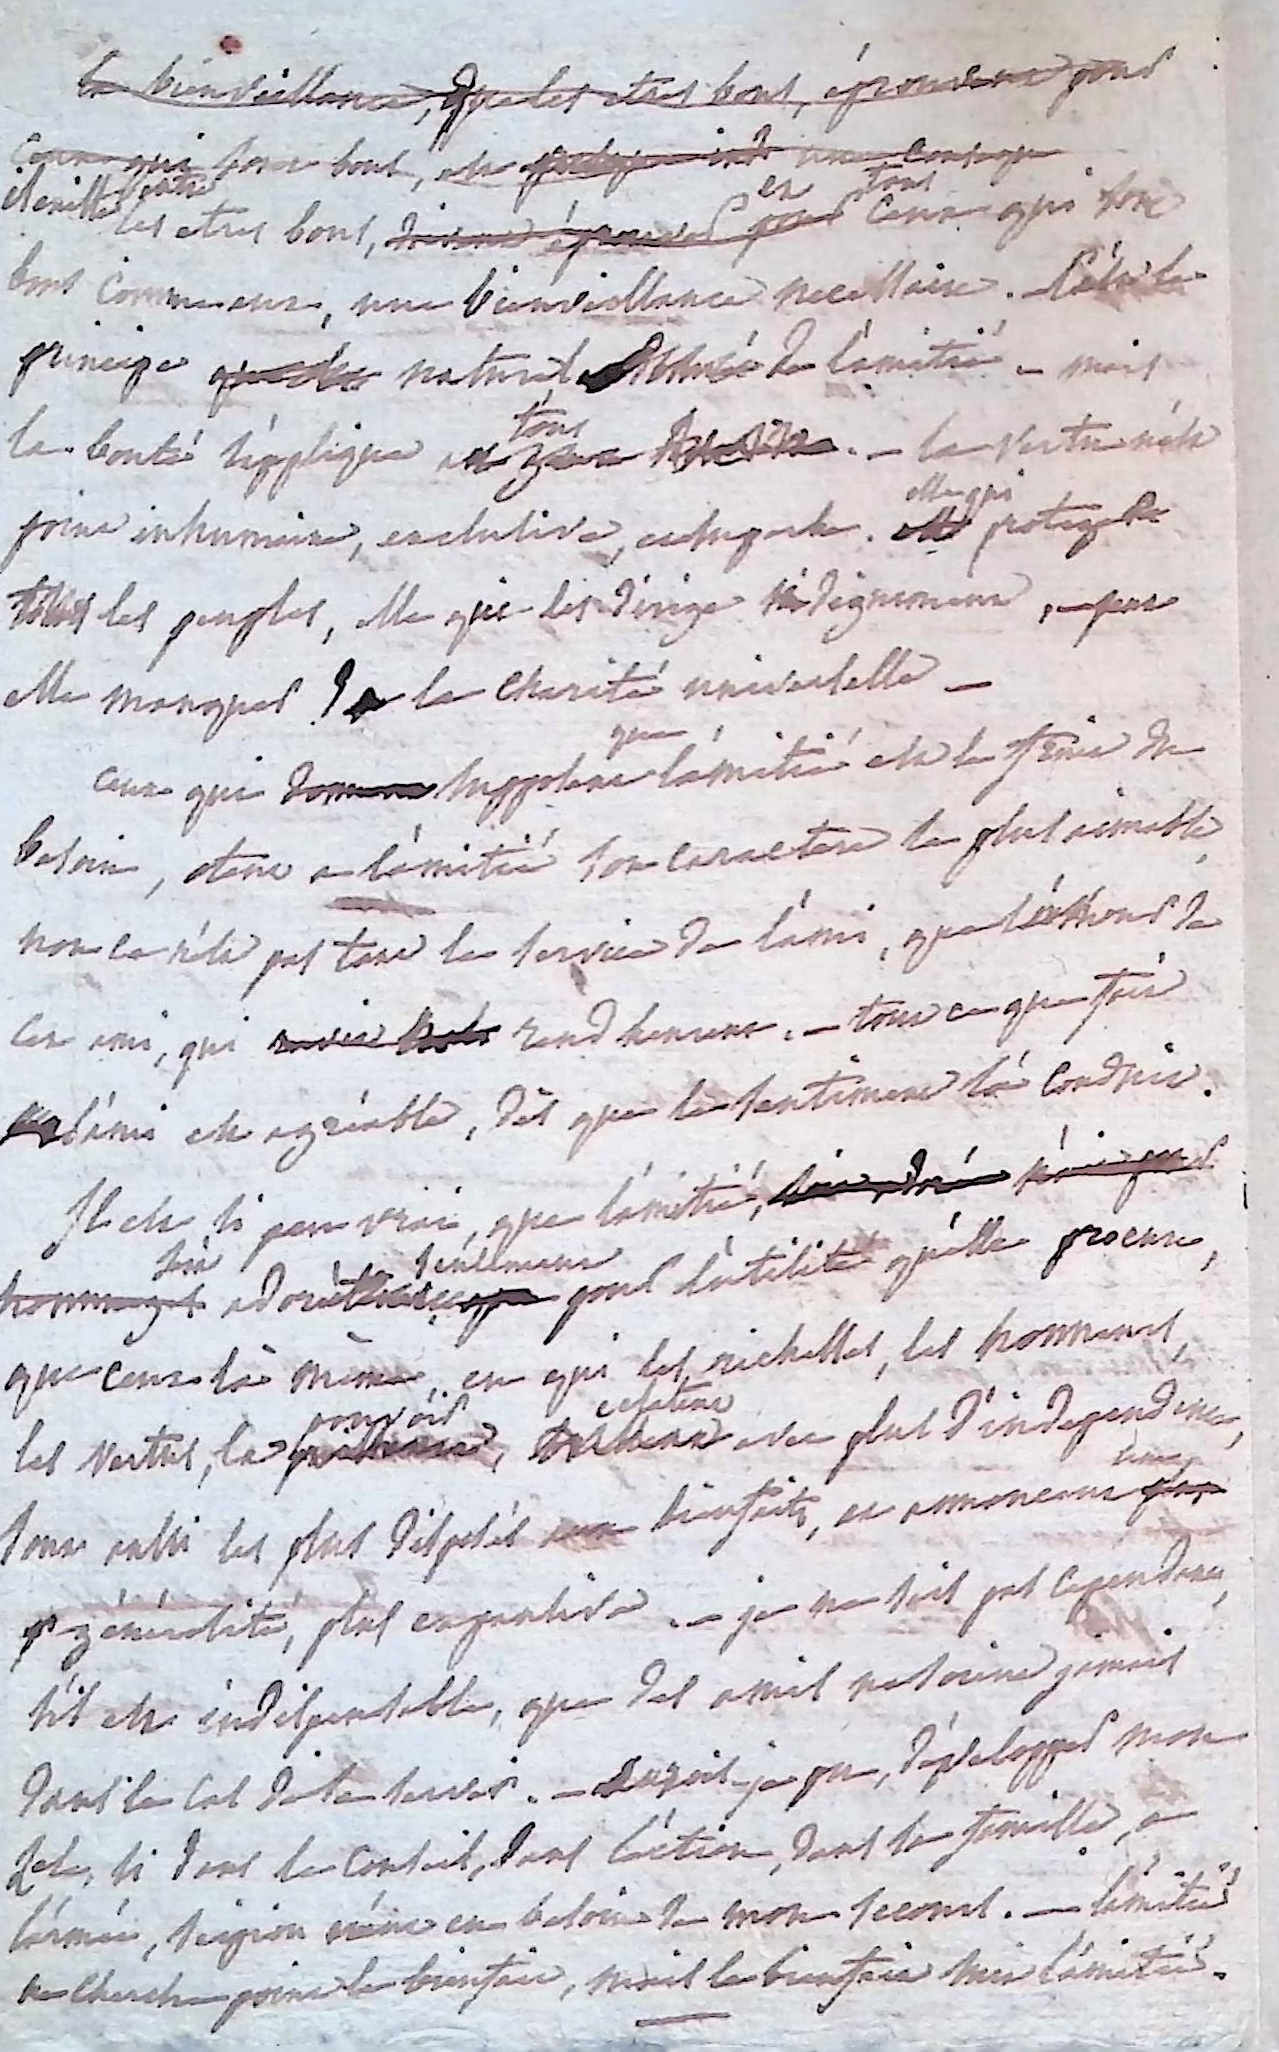 la bienveillance, que les etres bons, éprouvent pour
ceux qui sont bons, est une conseque
il existe entre
les etres bons, et tous ceux qui sont
bons comme eux, une bienveillance necessaire. C'est le
principe naturel de l'amitié – mais
la bonté s'applique a tous. – la vertu n'est
point inhumaine, exclusive, et superbe. elle qui protege
tous les peuples, elle qui les dirige si dignement, peut
elle manquer de la charité universelle –
ceux qui supposent que l'amitié est le fruit du
besoin, otent a l'amitié son caractere le plus aimable,
non ce n'est pas tant le service de l'ami, que l'amour de
cet ami, qui rend heureux. – tout ce que fait
l'ami est agréable, dès que le sentiment l'a conduit.
Il est si peu vrai, que l'amitié,
soit adorée seulement pour l'utilité qu'elle procure,
que ceux là même, en qui les richesses, les honneurs,
les vertus, le pouvoir, eclatent avec plus d'independance,
sont aussi les plus disposés aux bienfaits, et annoncent une
générosité, plus expansive. – je ne sais pas cependant,
s'il est indispensable, que des amis ne soient jamais
dans le cas de se servir. – aurois-je pu, développer mon
zele, si dans le conseil, dans l'action, dans sa famille, a
l'armée, Scipion n'eut eu besoin de mon secours. – l'amitié
ne cherche point le bienfait, mais le bienfait suit l'amitié.